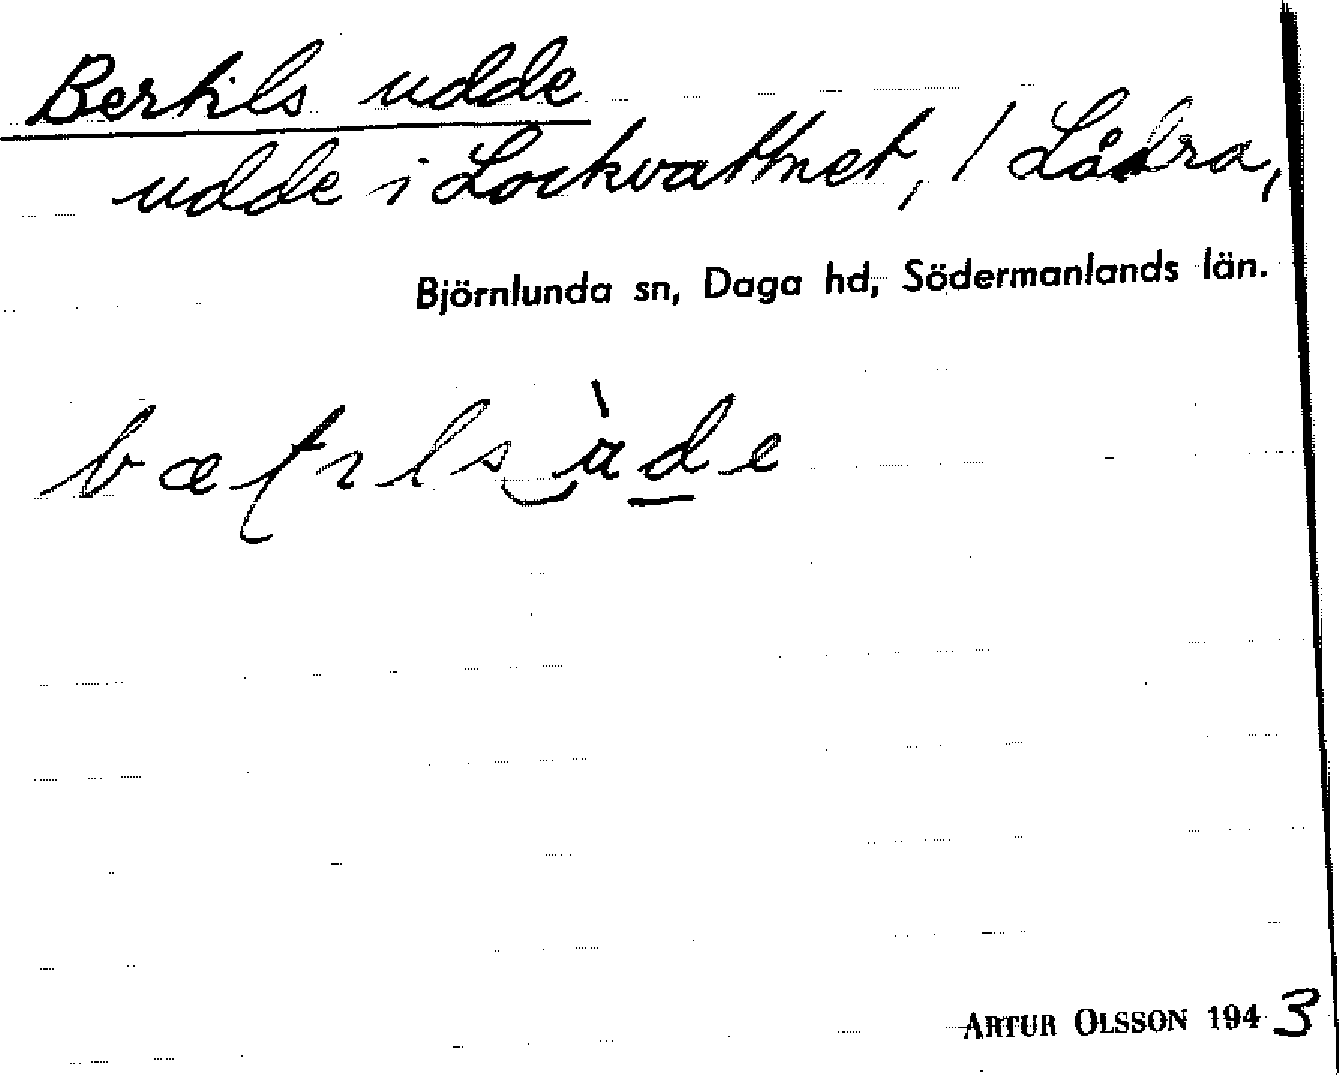 Bertils udde
udde i Lockvattnet, / Lådra,
Björnlunda sn, Daga hd, Södermanlands län.
ARTUR OLSSON 1943